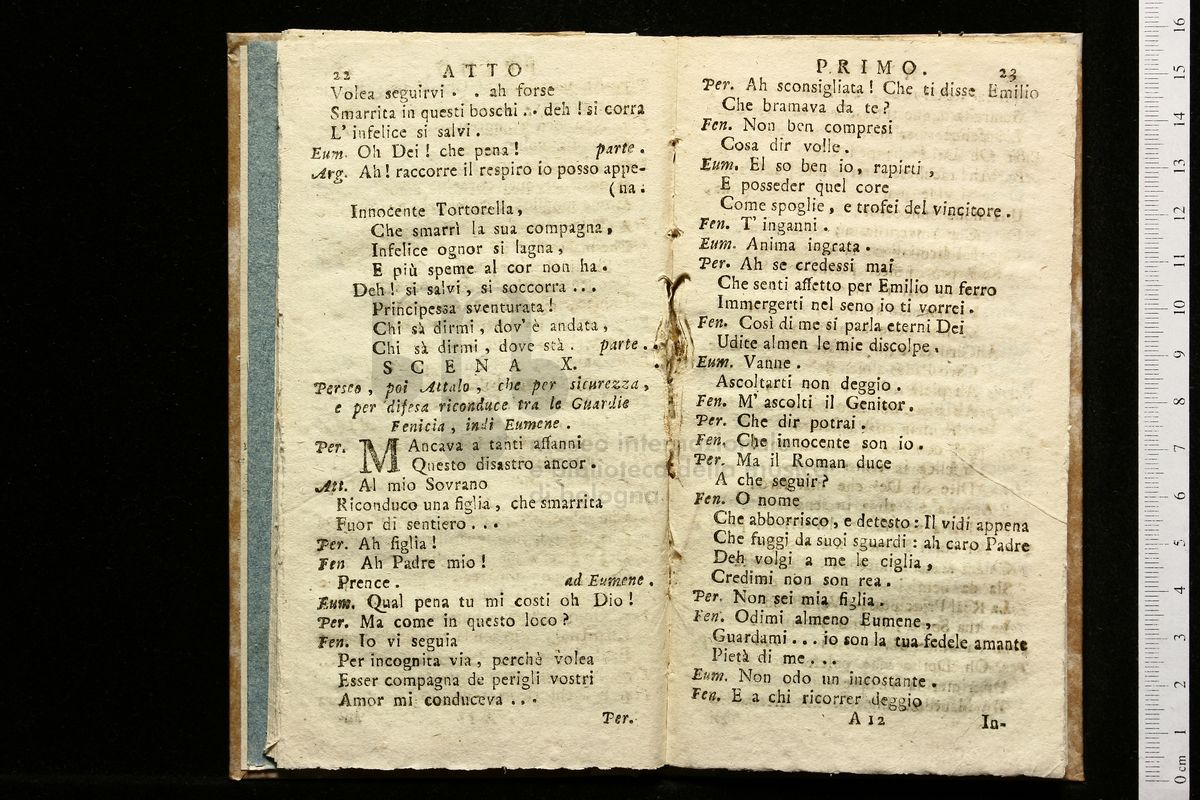 22 ATTO
Volea seguirvi . . ah forse
Smarrita in questi boschi . . deh ! si corra
L' infelice si salvi .
Eum. Oh Dei ! che pena ! parte .
Arg. Ah ! raccorre il respiro io posso appe-
(na .
Innocente Tortorella ,
Che smarrì la sua compagna ,
Infelice ognor si lagna ,
E più speme al cor non ha .
Deh ! si salvi , si soccorra . . .
Principessa sventurata !
Chi sà dirmi , dov' è andata ,
Chi sà dirmi , dove stà . parte .
SCENA X.
Perseo , poi Attalo , che per sicurezza ,
e per difesa riconduce tra le Guardie
Fenicia , indi Eumene .
Per. MAncava a tanti affanni
Questo disastro ancor .
Att. Al mio Sovrano
Riconduco una figlia , che smarrita
Fuor di sentiero . . .
Per. Ah figlia !
Fen Ah Padre mio !
Prence . ad Eumene .
Eum. Qual pena tu mi costi oh Dio !
Per. Ma come in questo loco ?
Fen. Io vi seguia
Per incognita via , perchè volea
Esser compagna de perigli vostri
Amor mi conduceva . . .
Per.
PRIMO. 23
Per. Ah sconsigliata ! Che ti disse Emilio
Che bramava da te ?
Fen. Non ben compresi
Cosa dir volle .
Eum. El so ben io , rapirti ,
E posseder quel core
Come spoglie , e trofei del vincitore .
Fen. T' inganni .
Eum. Anima ingrata .
Per. Ah se credessi mai
Che senti affetto per Emilio un ferro
Immergerti nel seno io ti vorrei .
Fen. Così di me si parla eterni Dei
Udite almen le mie discolpe .
Eum. Vanne .
Ascoltarti non deggio .
Fen. M' ascolti il Genitor .
Per. Che dir potrai .
Fen. Che innocente son io .
Per. Ma il Roman duce
A che seguir ?
Fen. O nome
Che abborrisco , e detesto : Il vidi appena
Che fuggi da suoi sguardi : ah caro Padre
Deh volgi a me le ciglia ,
Credimi non son rea .
Per. Non sei mia figlia .
Fen. Odimi almeno Eumene ,
Guardami . . . io son la tua fedele amante
Pietà di me . . .
Eum. Non odo un incostante .
Fen. E a chi ricorrer deggio
A 12 In-
0 cm 1 2 3 4 5 6 7 8 9 10 11 12 13 14 15 16